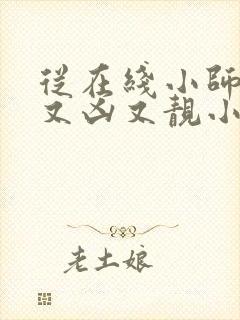 從在綫小師
又凶又靚小
老土娘